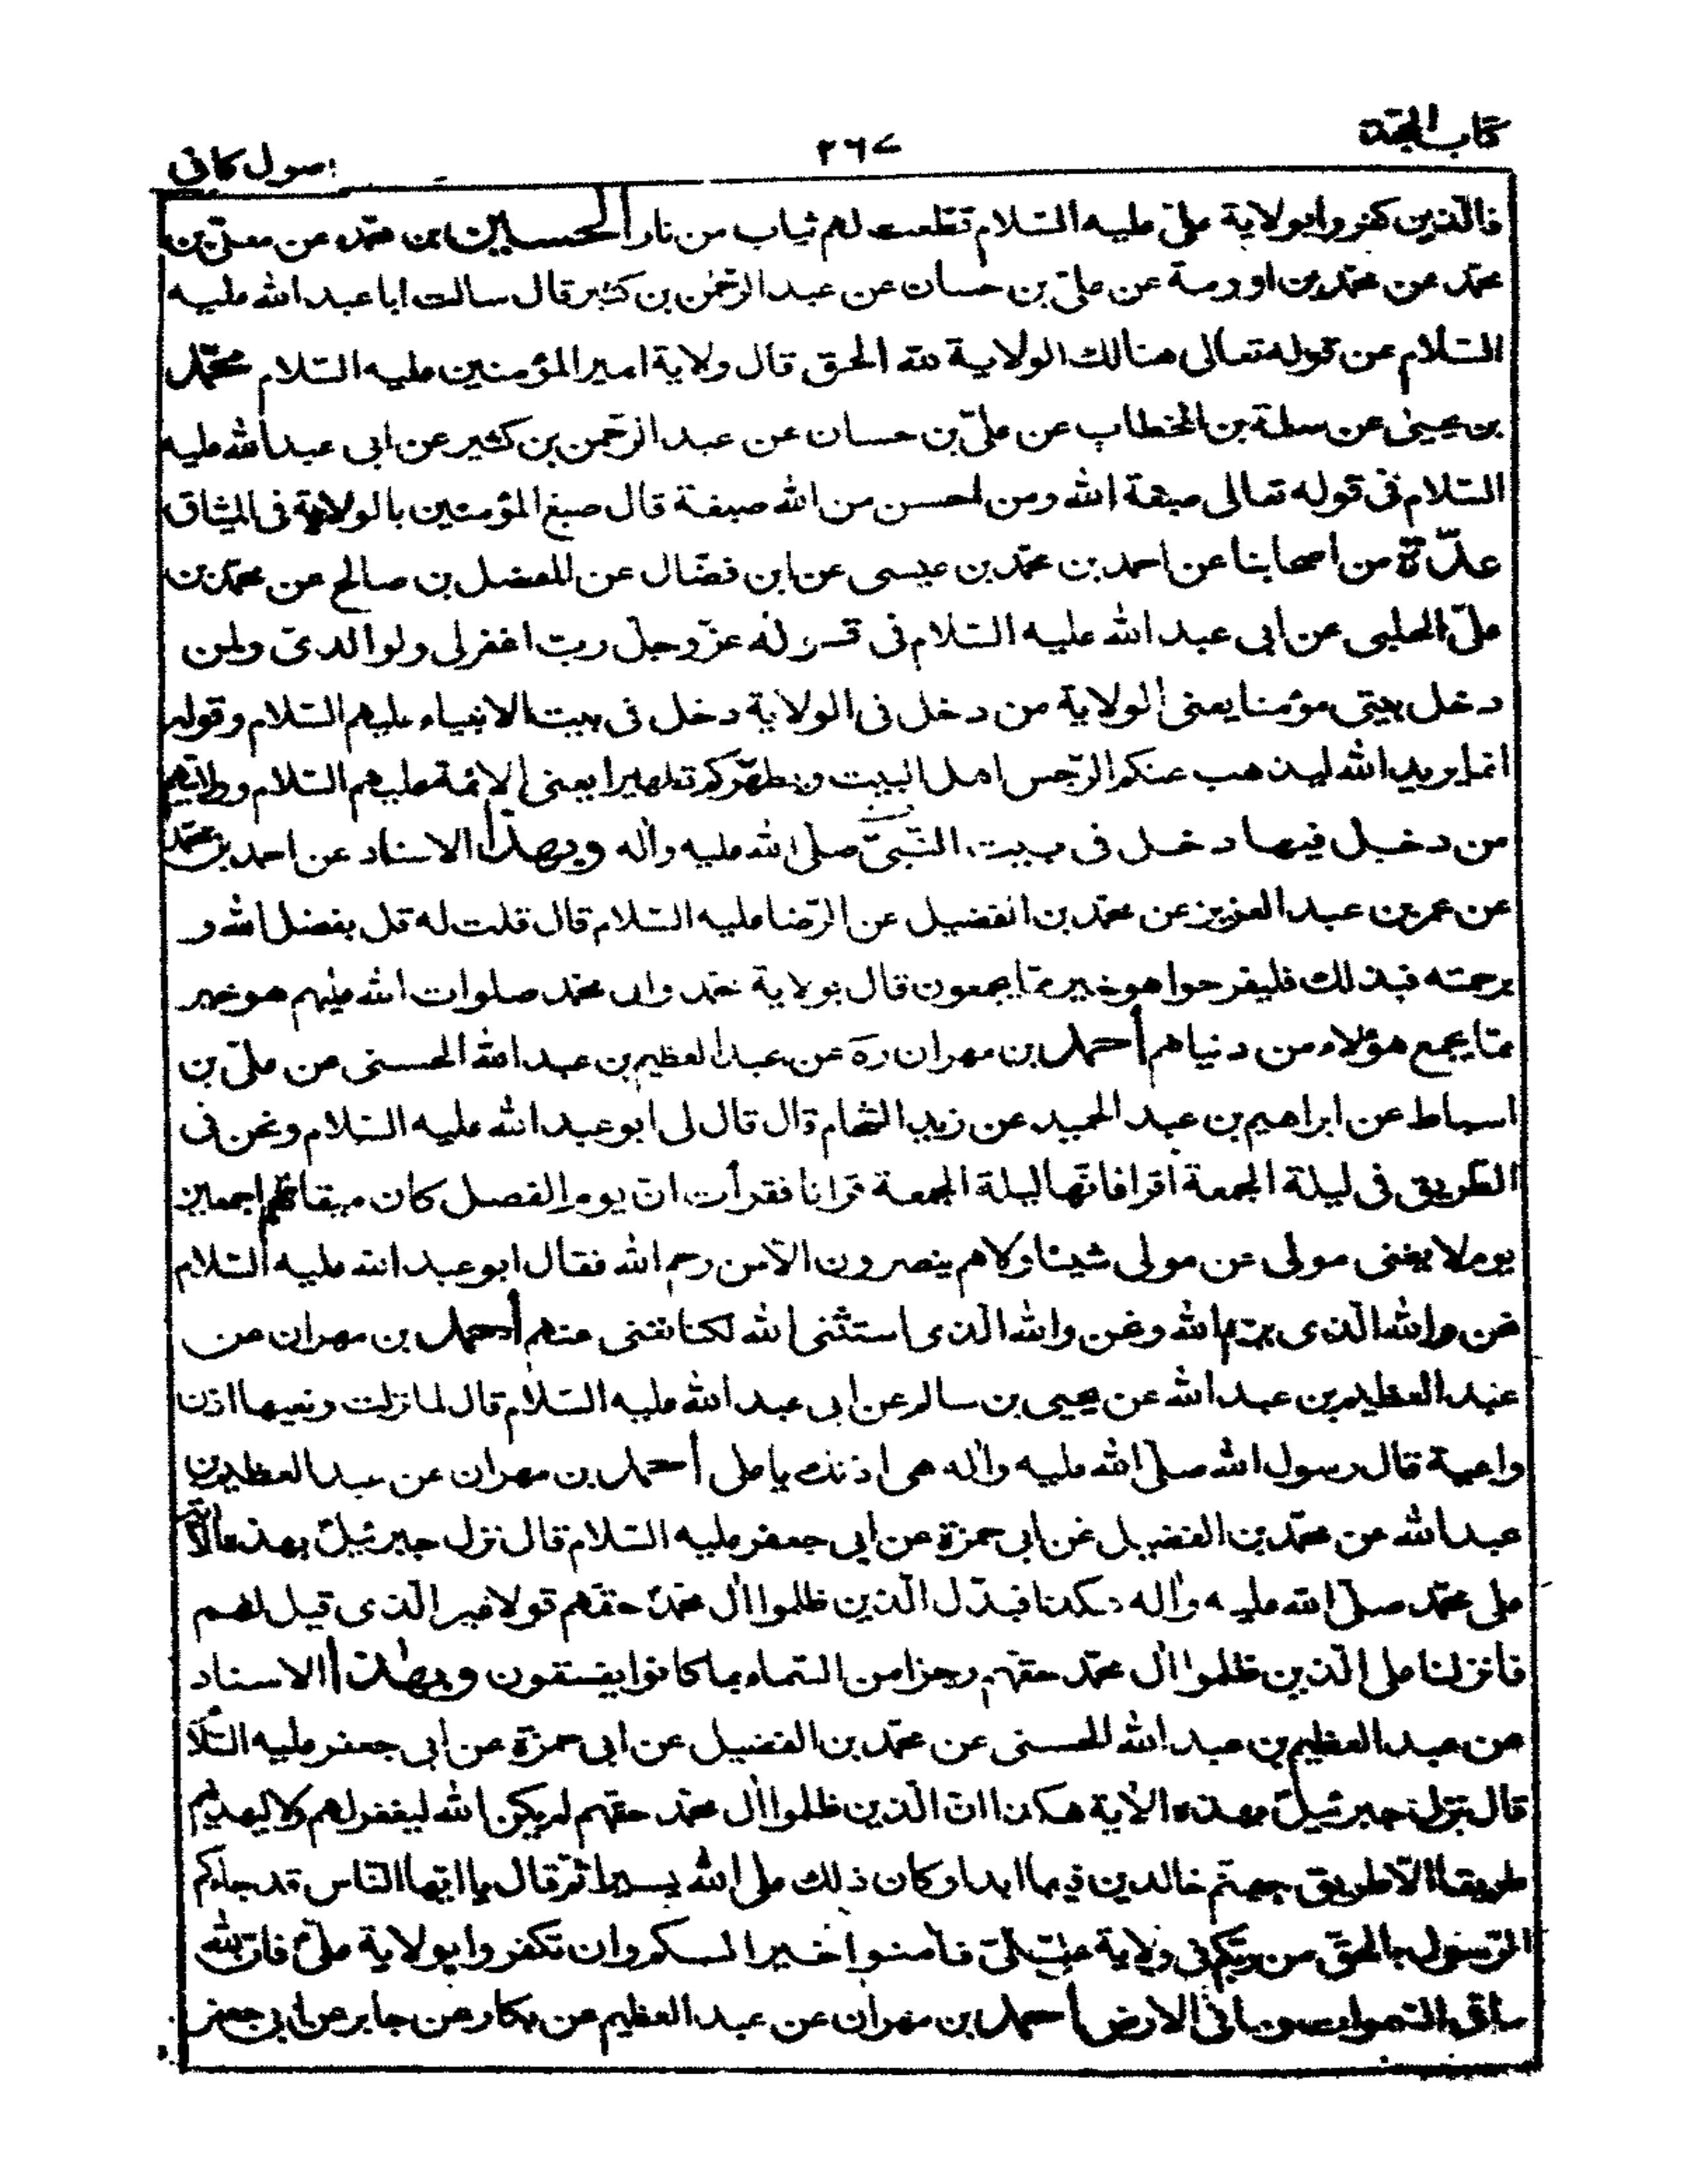 كتاب الحجة
٢٦٧
اصول كافى
فالّذين كفروا بولاية علىّ عليه السّلام قطعت لهم ثياب من نار الحسين بن محمّد عن معلّى بن
محمّد عن محمّد بن اورمة عن علىّ بن حسان عن عبد الرّحمٰن بن كثير قال سالت ابا عبد الله عليه
السّلام عن قوله تعالى هنالك الولاية لله الحق قال ولاية امير المؤمنين عليه السّلام محمّد
بن يحيىٰ عن سلمة بن الخطاب عن علىّ بن حسان عن عبد الرّحمن بن كثير عن ابى عبد الله عليه
السّلام فى قوله تعالى صبغة الله ومن احسن من الله صبغة قال صبغ المؤمنين بالولاية فى الميثاق
عدّة من اصحابنا عن احمد بن محمّد بن عيسى عن ابن فضّال عن المفضل بن صالح عن محمّد بن
علىّ الحلبى عن ابى عبد الله عليه السّلام فى قوله عزّ وجلّ ربّ اغفر لى ولوالدىّ ولمن
دخل بيتى مؤمنا يعنى الولاية من دخل فى الولاية دخل فى بيت الانبياء عليهم السّلام وقوله
انما يريد الله ليذهب عنكم الرّجس اهل البيت ويطهّركم تطهيرا يعنى الائمة عليهم السّلام وولايتهم
من دخل فيها دخل فى بيت النّبىّ صلّى الله عليه واٰله وبهذا الاسناد عن احمد بن محمّد
عن عمر بن عبد العزيز عن محمّد بن الفضيل عن الرّضا عليه السّلام قال قلت له قل بفضل الله و
برحمته فبذلك فليفرحوا هو خير ممّا يجمعون قال بولاية محمّد وال محمّد صلوات الله عليهم هو خير
ممّا يجمع هؤلاء من دنياهم أحمد بن مهران ره عن عبد العظيم بن عبد الله الحسنى عن علىّ بن
اسباط عن ابراهيم بن عبد الحميد عن زيد الشّحام قال قال لى ابو عبد الله عليه السّلام ونحن فى
الطّريق فى ليلة الجمعة اقرا فانّها ليلة الجمعة قرانا فقرأت انّ يوم الفصل كان ميقاتهم اجمعين
يوم لا يغنى مولى عن مولى شيئا ولا هم ينصرون الّا من رحم الله فقال ابو عبد الله عليه السّلام
نحن والله الّذى يرحم الله ونحن والله الّذى استثنى الله لكنا نغنى عنهم أحمد بن مهران عن
عبد العظيم بن عبد الله عن يحيى بن سالم عن ابى عبد الله عليه السّلام قال لما نزلت وتعيها اذن
واعية قال رسول الله صلّى الله عليه واٰله هى اذنك يا على أحمد بن مهران عن عبد العظيم بن
عبد الله عن محمّد بن الفضيل عن ابى حمزة عن ابى جعفر عليه السّلام قال نزل جبرئيلّ بهذه الاٰية
على محمّد صلّى الله عليه واٰله هكذا فبدّل الّذين ظلموا اٰل محمّد حقهم قولا غير الّذى قيل لهم
فانزلنا على الّذين ظلموا اٰل محمّد حقهم رجزا من السّماء بما كانوا يفسقون وبهٰذا الاسناد
عن عبد العظيم بن عبد الله الحسنى عن محمّد بن الفضيل عن ابى حمزة عن ابى جعفر عليه السّلام
قال نزل جبرئيلّ بهذه الاٰية هكذا انّ الّذين ظلموا اٰل محمّد حقهم لم يكن الله ليغفر لهم ولا ليهديهم
طريقا الّا طريق جهنّم خالدين فيها ابدا وكان ذلك على الله يسيرا ثمّ قال يا ايّها النّاس قد جاءكم
الرّسول بالحقّ من ربّكم فى ولاية علىّ فاٰمنوا خيرا لكم وان تكفروا بولاية علىّ فانّ لله
ما فى السّموات وما فى الارض أحمد بن مهران عن عبد العظيم عن بكار عن جابر عن ابى جعفر